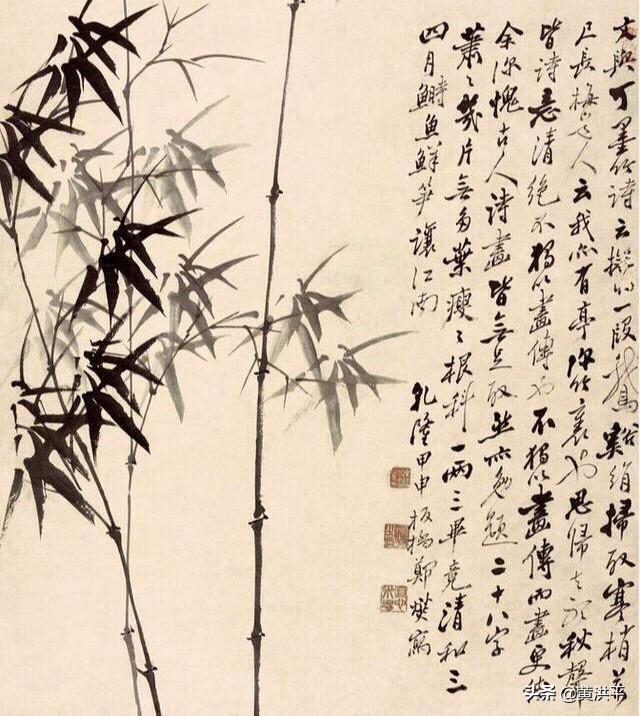 文與可墨竹詩云擬將一段鵞谿絹掃取寒梢萬
尺長梅道人云我亦有亭深竹裏也思歸去聽秋聲
皆詩意清絕不獨以畫傳也不獨以畫傳而畫更傳
余深愧古人詩畫皆無足取然亦勉題二十八字
蕭々幾片無多葉瘦々根科一兩三畢竟清和三
四月鰣魚鮮筍讓江南
乾隆甲申板橋鄭燮寫
头条 @黄洪平